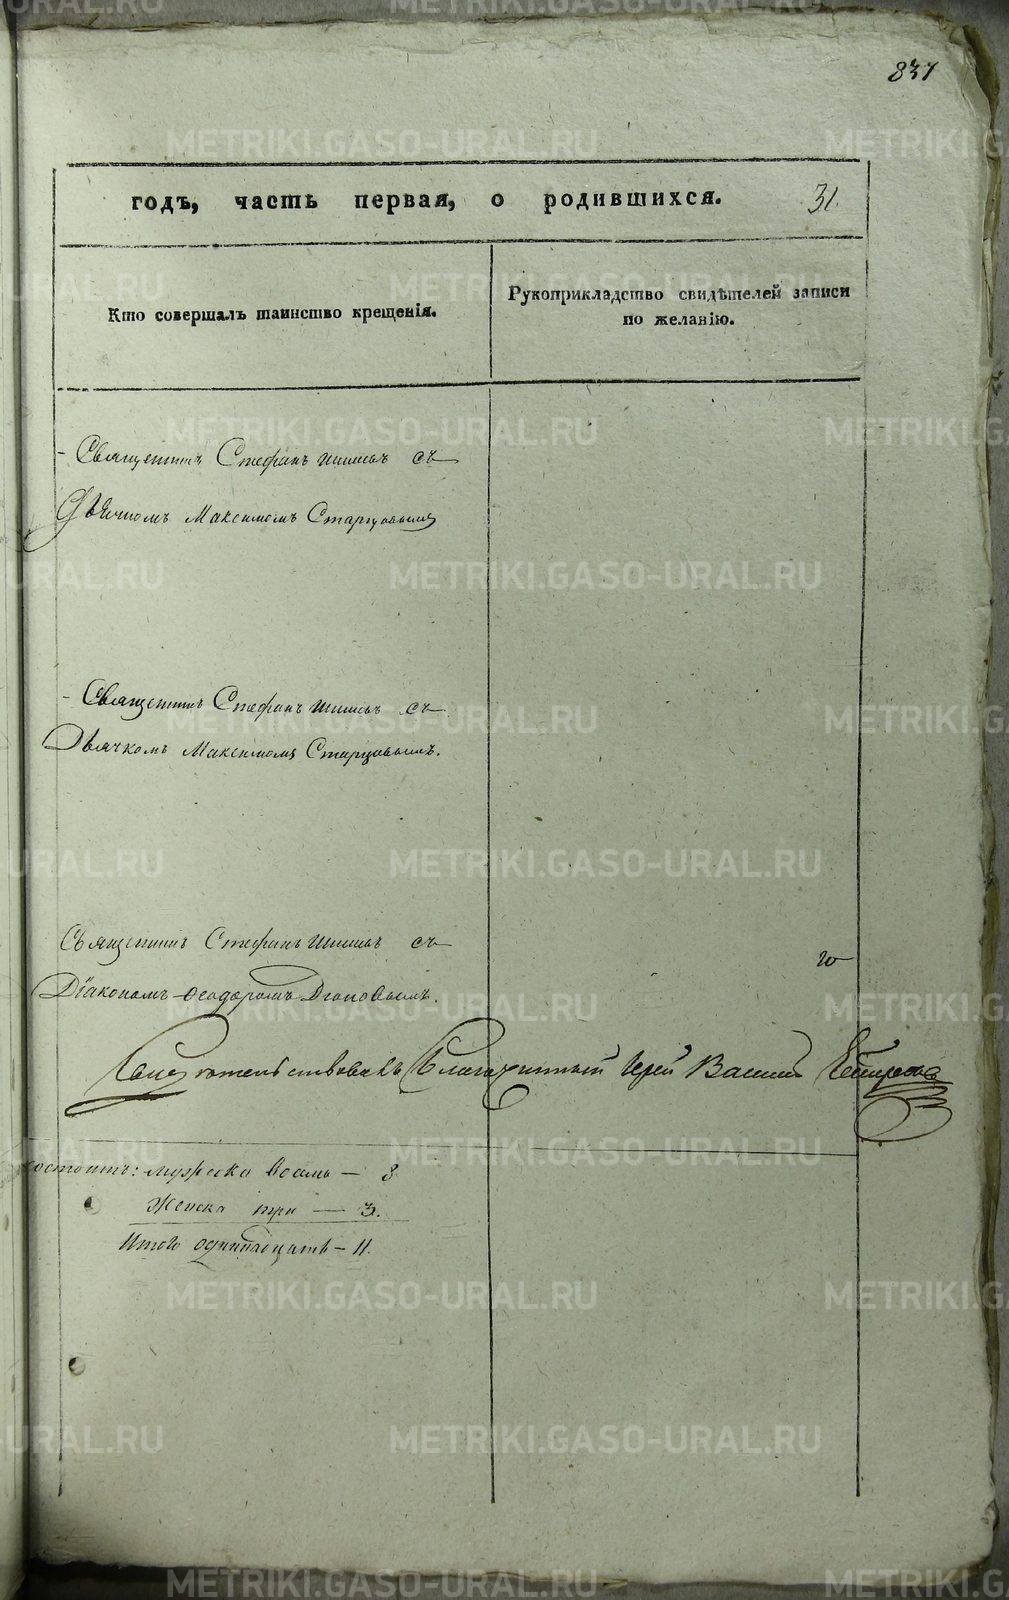 837
годъ, часть первая, о родившихся. 31.
Кто совершалъ таинство крещенія.
Рукоприкладство свидѣтелей записи
по желанію.
Священникъ Стефанъ Шишовъ съ
Дьячкомъ Максимомъ Старцовымъ
Священникъ Стефанъ Шишовъ съ
Дьячкомъ Максимомъ Старцовымъ.
Священникъ Стефанъ Шишовъ съ
Діакономъ Ѳеодоромъ
Свидѣтельствовалъ Благочинный Іерей Василій
состоитъ: мужеска восемь — 8
Женска три — 3.
Итого одиннадцать — 11.
METRIKI.GASO-URAL.RU